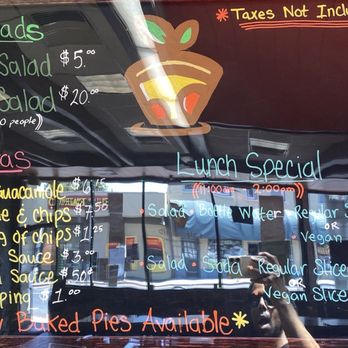 ads
*Taxes Not Inclu
Salad $5.00
Salad $20.00
0 people))
as
Guacamole $6.45
e & chips $7.50
g of chips $1.25
Sauce $3.00
Sauce 50¢
ping $1.00
Lunch Special
((11:00am 2:00pm))
• Salad • Bottle Water • Regular S
OR
• Vegan
• Salad • Soda • Regular Slice
OR
Vegan Slice
Baked Pies Available*